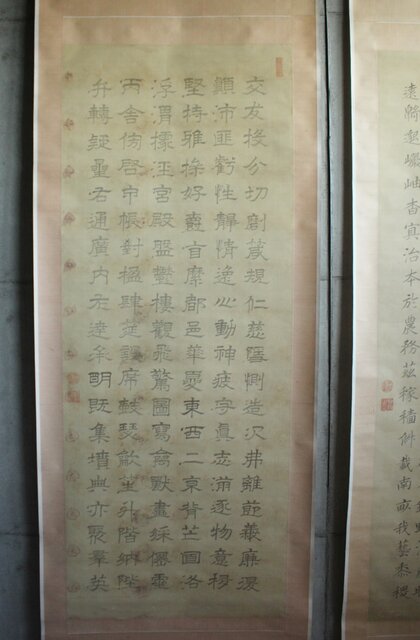 交友投分切磨箴規仁慈隱惻造次弗離節義廉退
顛沛匪虧性靜情逸心動神疲守真志滿逐物意移
堅持雅操好爵自縻都邑華夏東西二京背芒面洛
浮渭據涇宮殿盤鬱樓觀飛驚圖寫禽獸畫綵僊靈
丙舍傍啓甲帳對楹肆筵設席鼓瑟龡笙升階納陛
弁轉疑星右通廣內左達承明既集墳典亦聚羣英
遠緜邈巖岫杳冥治本於農務茲稼穡俶載南畝我藝黍稷